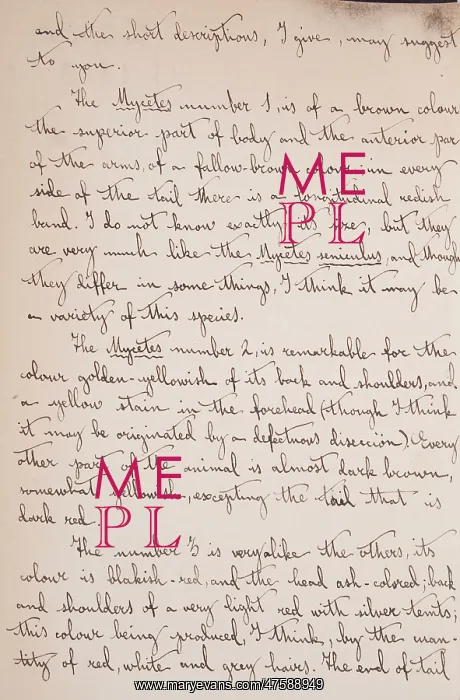 and the short descriptions, I give, may suggest
to you.
The Mycetes number 1, is of a brown colour
the superior part of body and the anterior par
of the arms, of a fallow-brown colour in every
side of the tail there is a longitudinal redish
band. I do not know exactly its , but they
are very much like the Mycetes seniculus, and though
they differ in some things, I think it may be
a variety of this species.
The Mycetes number 2, is remarkable for the
colour golden-yellowish of its back and shoulders, and
a yellow stain in the forehead (though I think
it may be originated by a defectuous disección). Every
other part of the animal is almost dark brown,
somewhat yellowish, excepting the tail that is
dark red.
The number 3 is very alike the others, its
colour is blakish-red, and the head ash-colored; back
and shoulders of a very light red with silver tents;
this colour being produced, I think, by the man-
tity of red, white and grey hairs. The end of tail
ME
PL
ME
PL
www.maryevans.com/47588949